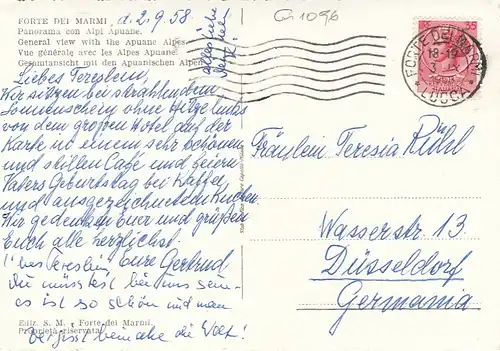 FORTE DEI MARMI, d. 2.9.58.
Panorama con Alpi Apuane.
General view with the Apuane Alpes.
Vue générale avec les Alpes Apuane.
Gesamtansicht mit den Apuanischen Alpen
alles liebe
G 1096
Liebes Tereslein,
Wir sitzen bei strahlendem
Sonnenschein ohne Hitze links
von dem großen Hotel auf der
Karte in einem sehr schönen
und stillen Café und feiern
Vaters Geburtstag bei Kaffee
und ausgezeichnetem Kuchen.
Wir gedenken Eurer und grüßen
Euch alle herzlichst.
Eure Gertrud
Du müsstest bei uns sein-
es ist so schön und man
vergisst beinahe die Welt!
Ediz. S. M. - Forte dei Marmi.
Proprietà riservata
35
FORTE DEI MARMI
18-19
LUCCA
Fräulein Teresia Rühl
Wasserstr. 13
Düsseldorf
Germania